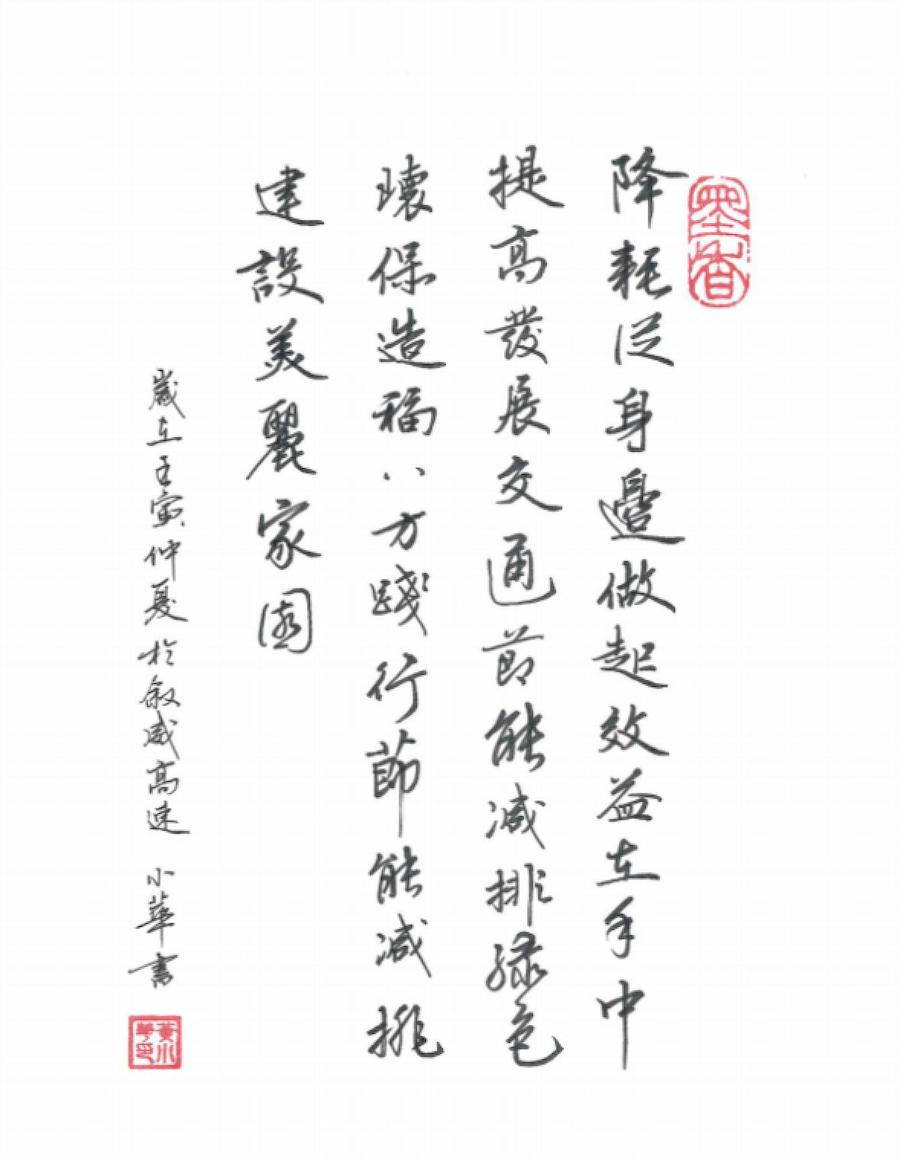 墨香
降耗从身邊做起效益在手中
提高發展交通節能減排綠色
環保造福八方踐行節能減排
建設美麗家園
歲在壬寅仲夏於叙威高速 小華書
黃小華印